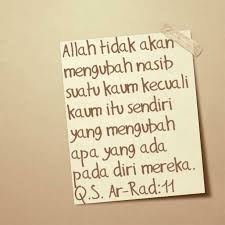 Allah tidak akan
mengubah nasib
suatu kaum kecuali
kaum itu sendiri
yang mengubah
apa yang ada
pada diri mereka.
Q.S. Ar-Rad:11